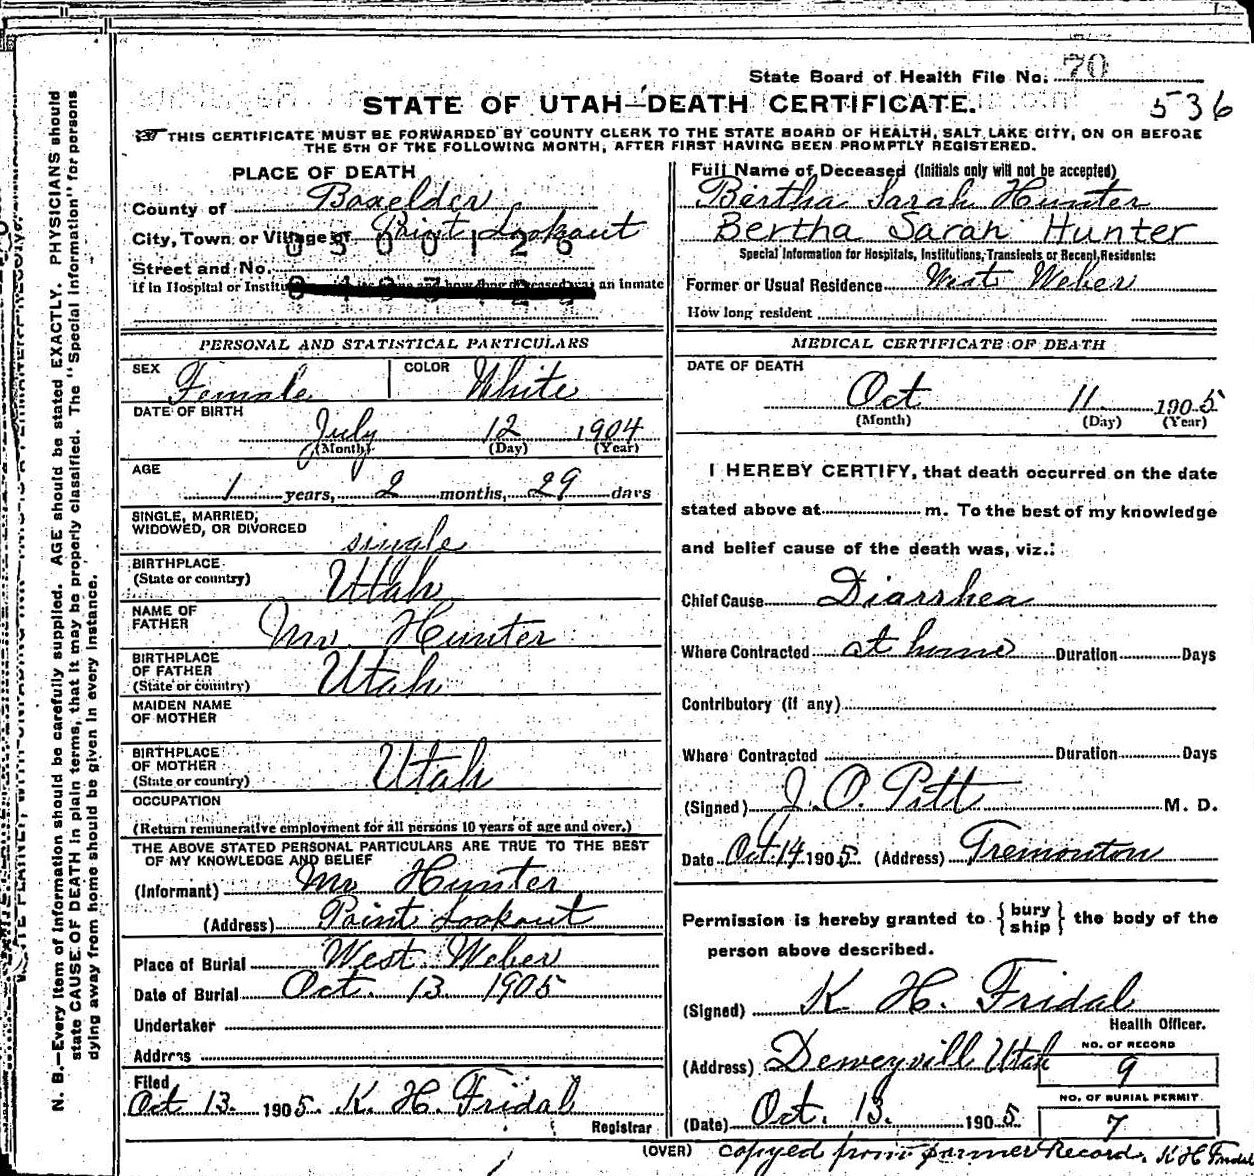 State Board of Health File No. 70
STATE OF UTAH—DEATH CERTIFICATE.
536
THIS CERTIFICATE MUST BE FORWARDED BY COUNTY CLERK TO THE STATE BOARD OF HEALTH, SALT LAKE CITY, ON OR BEFORE
THE 5TH OF THE FOLLOWING MONTH, AFTER FIRST HAVING BEEN PROMPTLY REGISTERED.
PLACE OF DEATH
County of Boxelder
City, Town or Village of Point Lookout
0500126
Street and No.
If in Hospital or Institu an inmate
Full Name of Deceased (Initials only will not be accepted)
Bertha Sarah Hunter
Bertha Sarah Hunter
Special Information for Hospitals, Institutions, Transients or Recent Residents:
Former or Usual Residence West Weber
How long resident
PERSONAL AND STATISTICAL PARTICULARS
SEX Female COLOR White
DATE OF BIRTH
July 12 1904
(Month) (Day) (Year)
AGE
1 years, 2 months, 29 days
SINGLE, MARRIED,
WIDOWED, OR DIVORCED single
BIRTHPLACE
(State or country) Utah
NAME OF
FATHER Mr. Hunter
BIRTHPLACE
OF FATHER
(State or country) Utah
MAIDEN NAME
OF MOTHER
BIRTHPLACE
OF MOTHER
(State or country) Utah
OCCUPATION
(Return remunerative employment for all persons 10 years of age and over.)
THE ABOVE STATED PERSONAL PARTICULARS ARE TRUE TO THE BEST
OF MY KNOWLEDGE AND BELIEF
(Informant) Mr Hunter
(Address) Point Lookout
Place of Burial West Weber
Date of Burial Oct. 13 1905
Undertaker
Address
Filed
Oct 13. 1905. K. H. Fridal
Registrar
MEDICAL CERTIFICATE OF DEATH
DATE OF DEATH
Oct 11 1905
(Month) (Day) (Year)
I HEREBY CERTIFY, that death occurred on the date
stated above at m. To the best of my knowledge
and belief cause of the death was, viz.:
Chief Cause Diarrhea
Where Contracted at home Duration Days
Contributory (if any)
Where Contracted Duration Days
(Signed) J. O. Pitt M. D.
Date Oct. 14 1905 (Address) Tremonton
Permission is hereby granted to {bury ship} the body of the
person above described.
(Signed) K H. Fridal
Health Officer.
(Address) Deweyvill Utah
NO. OF RECORD
9
(Date) Oct. 13. 1905
NO. OF BURIAL PERMIT
7
(OVER) copyed from former Record. K H Fridal
N. B.—Every item of information should be carefully supplied. AGE should be stated EXACTLY. PHYSICIANS should
state CAUSE OF DEATH in plain terms, that it may be properly classified. The "Special Information" for persons
dying away from home should be given in every instance.